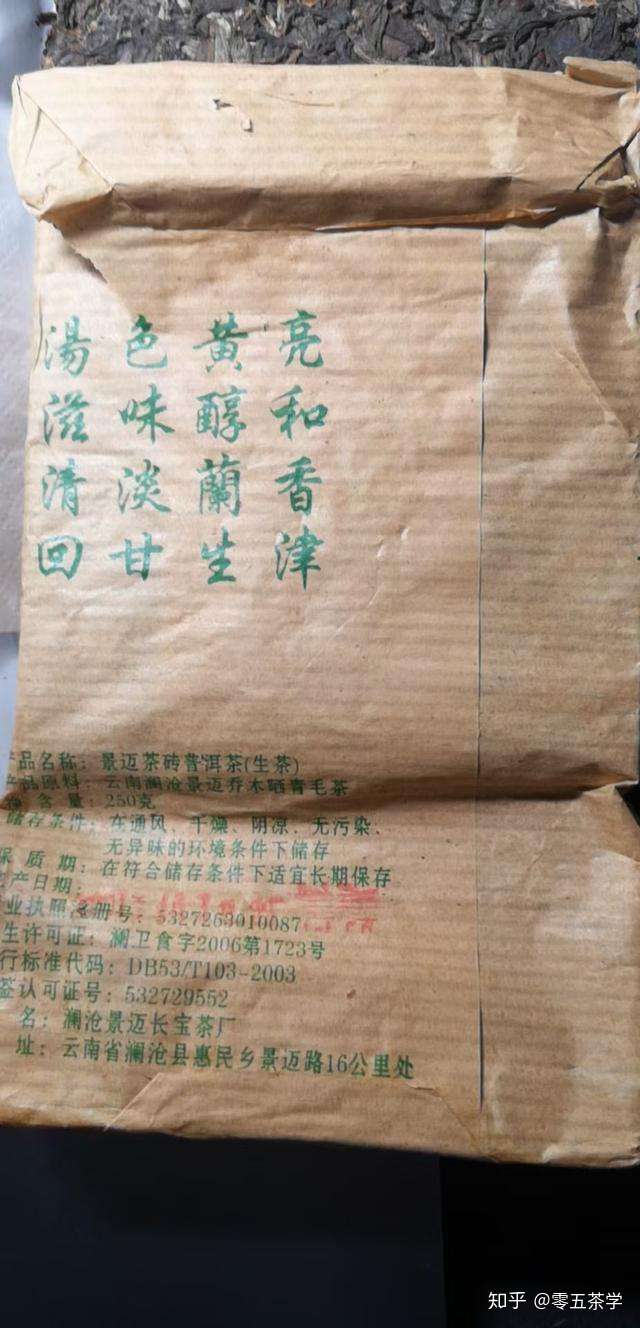 湯色黃亮
滋味醇和
清淡蘭香
回甘生津
产品名称：景迈茶砖普洱茶(生茶)
产品原料：云南澜沧景迈乔木晒青毛茶
净含量：250克
储存条件：在通风、干燥、阴凉、无污染、
无异味的环境条件下储存
保质期：在符合储存条件下适宜长期保存
生产日期：
业执照注册号：5327263010087
生许可证：澜卫食字2006第1723号
行标准代码：DB53/T103-2003
签认可证号：532729552
名：澜沧景迈长宝茶厂
址：云南省澜沧县惠民乡景迈路16公里处
知乎 @零五茶学